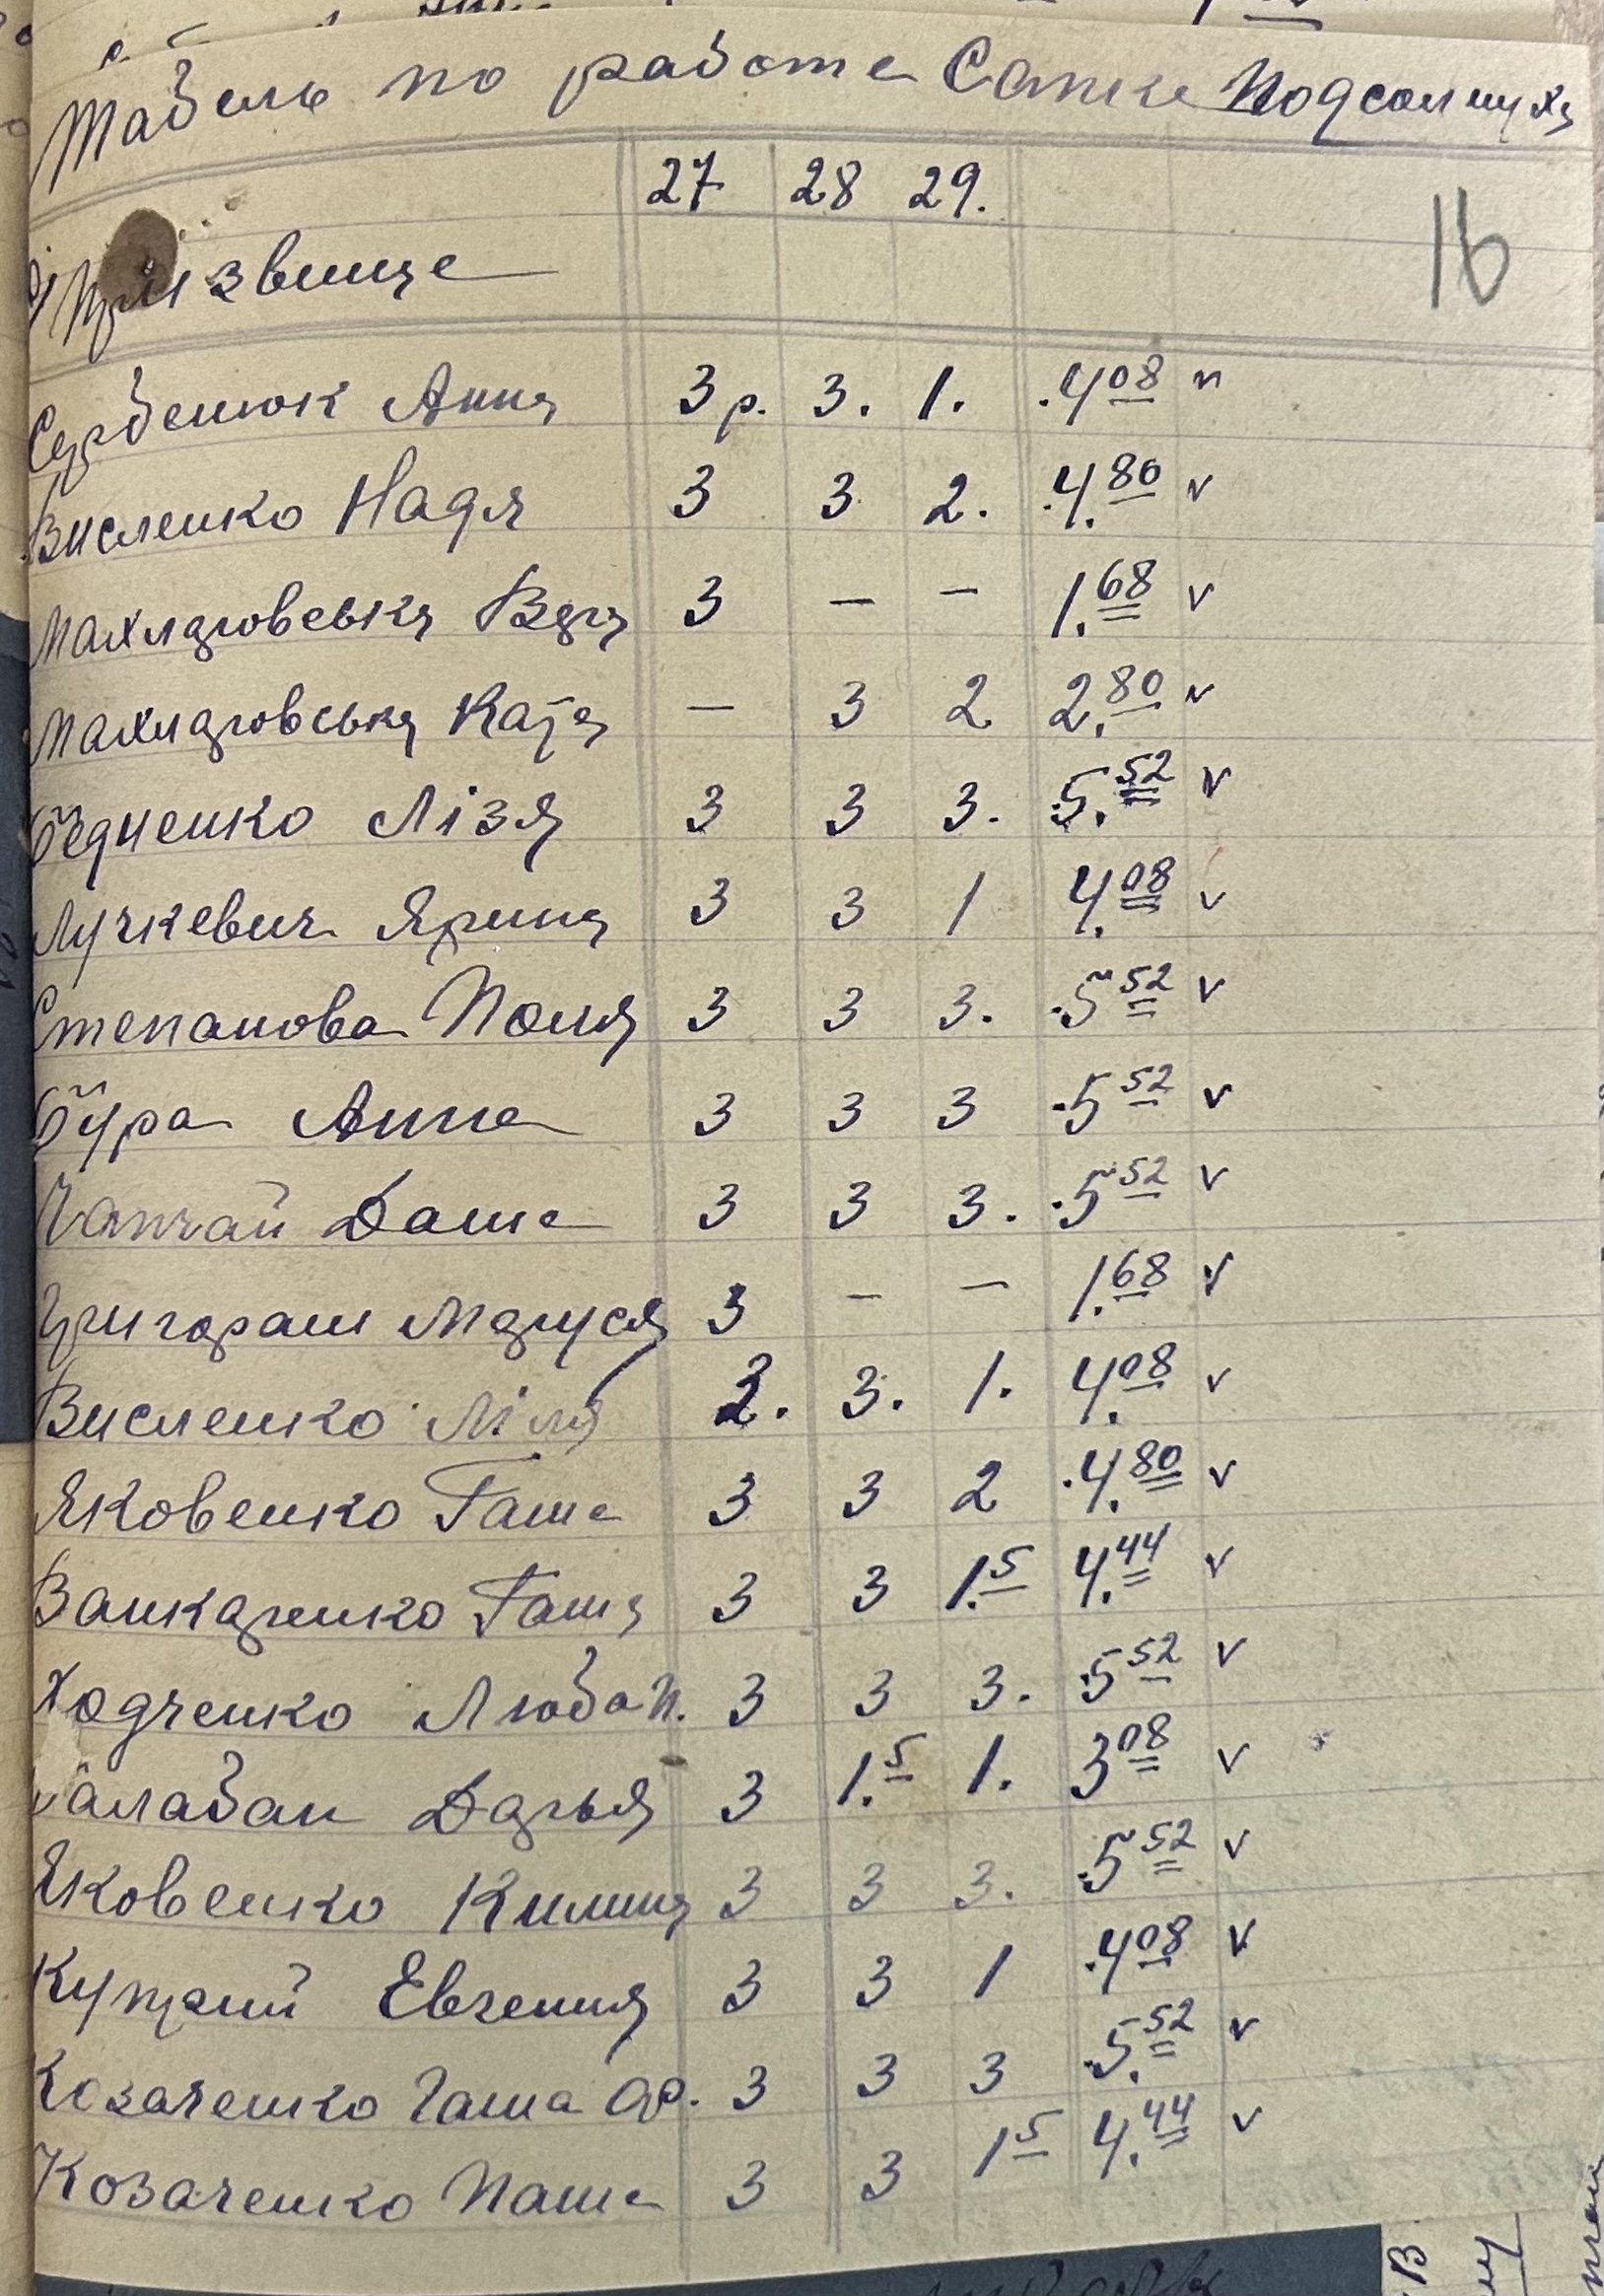 Табель по работе Сапке Подсолнуха
27 28 29.
16
Прізвище
Сербенюк Анна 3р. 3. 1. 4.08 v
Висленко Надя 3 3 2. 4.80 v
Махларовська Вера 3 — — 1.68 v
Махларовська Катя — 3 2 2.80 v
Бедненко Лізя 3 3 3. 5.52 v
Лучкевич Ярина 3 3 1 4.08 v
Степанова Поля 3 3 3. 5.52 v
Бура Анна 3 3 3 5.52 v
Чапчай Даша 3 3 3. 5.52 v
Григораш Маруся 3 — — 1.68 v
Висленко Ліля 3. 1. 4.08 v
Яковенко Гаша 3 3 2 4.80 v
Ванкаренко Гаша 3 3 1.5 4.44 v
Ходченко Люба П. 3 3 3. 5.52 v
Балабан Дарья 3 1.5 1. 3.08 v
Яковенко Килина 3 3 3. 5.52 v
Евгения 3 3 1 4.08 v
Козаченко Гаша Ф. 3 3 3 5.52 v
Козаченко Паша 3 3 1.5 4.44 v